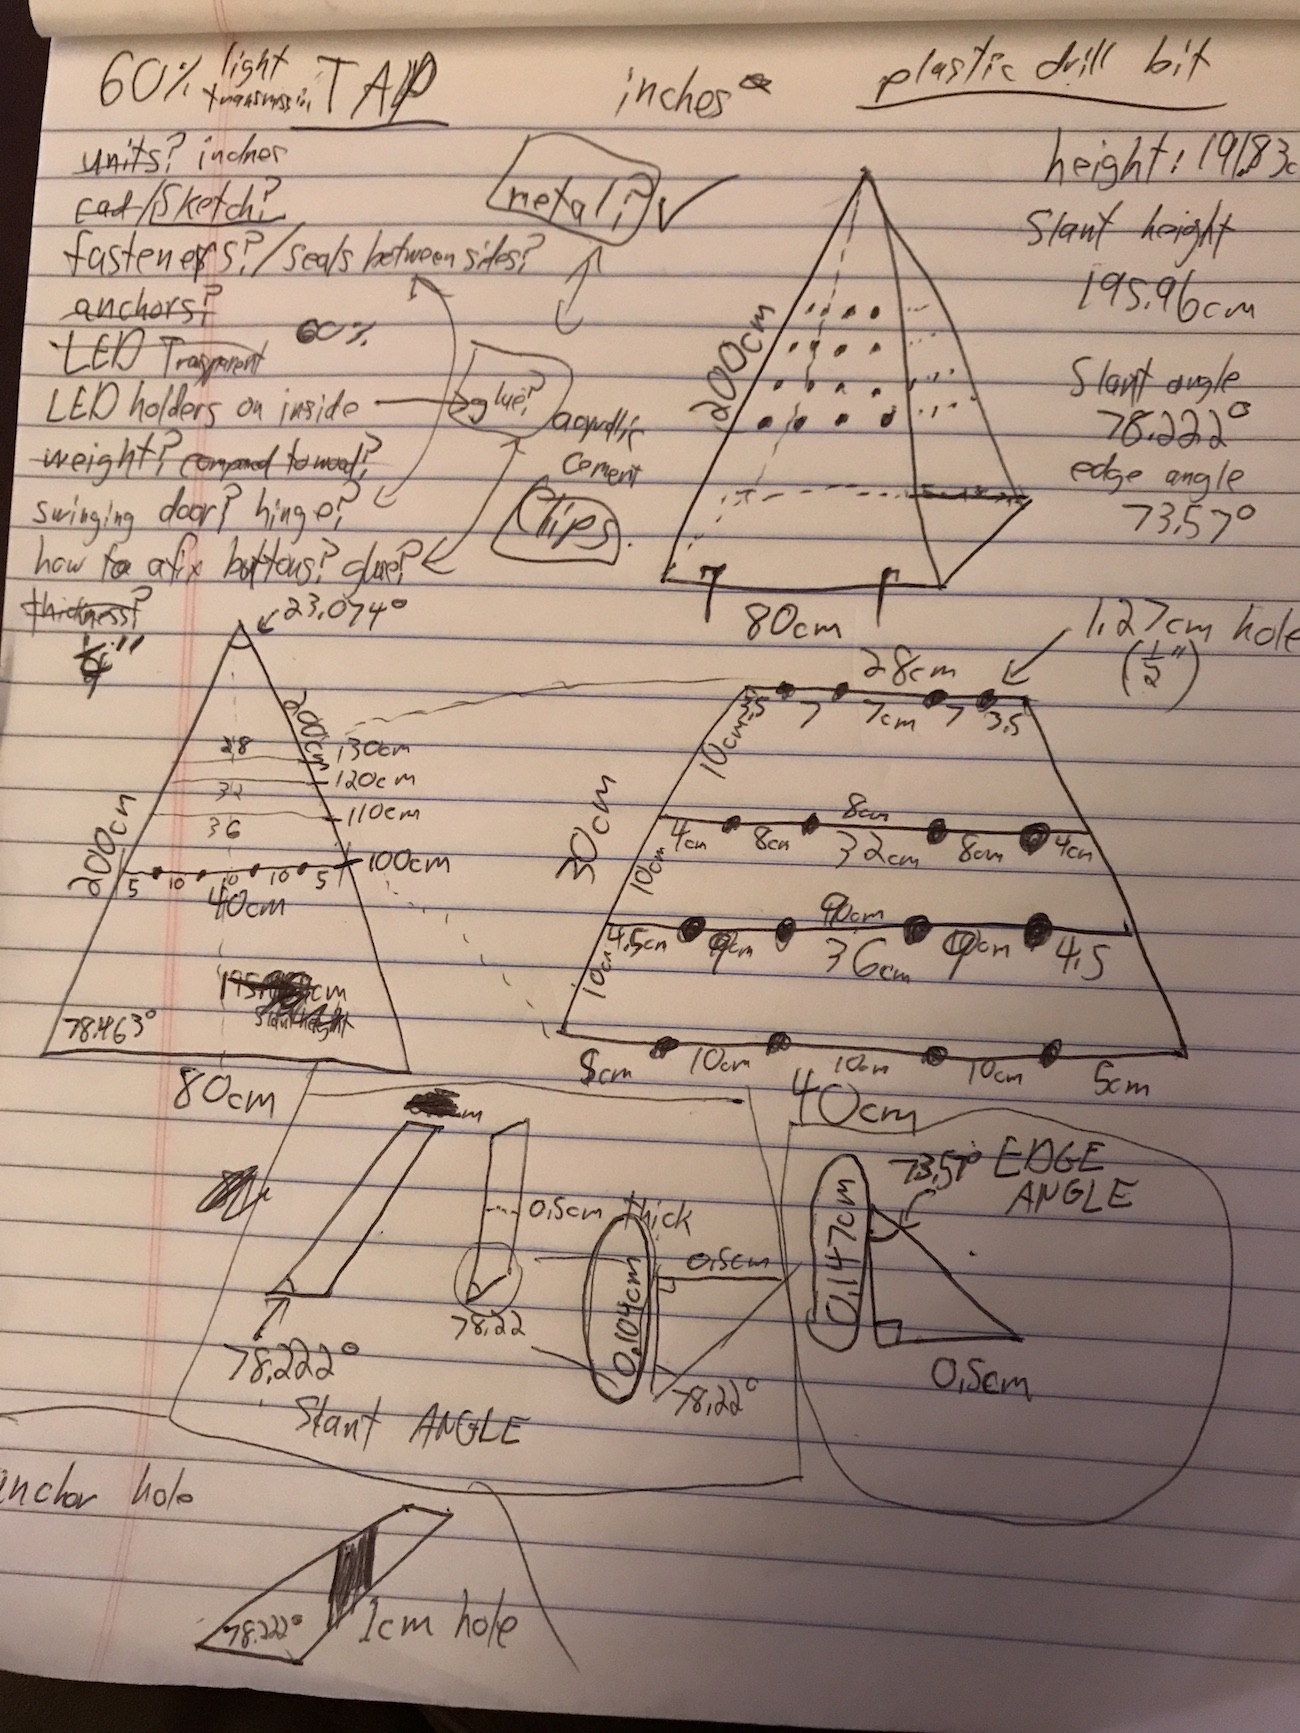 60% light transmission TAP
inches
plastic drill bit
units? inches
cad/sketch?
fasteners?/seals between sides?
anchors?
60%
LED Trasparent
LED holders on inside
weight?
swinging door? hinge?
how to afix buttons? glue?
thickness?
metal?
glue?
acryllic
cement
Clips
200cm
80cm
height: 191.83c
Slant height
195.96cm
Slant angle
78.222°
edge angle
73.57°
23.074°
200cm
200cm
28
32
36
130cm
120cm
110cm
100cm
5 10 10 10 5
40cm
78.463°
80cm
1.27cm hole
(1/2")
28cm
3.5 7 7cm 7 3.5
10cm
30cm
8cm
4cm 8cm 32cm 8cm 4cm
10cm
90cm
4.5cm 9cm 36cm 9cm 4.5
10cm
5cm 10cm 10cm 10cm 5cm
40cm
0.5cm thick
78.222°
78.22
0.104cm
0.5cm
78.22°
Slant ANGLE
73.57° EDGE
ANGLE
0.147cm
0.5cm
anchor hole
78.222°
1cm hole